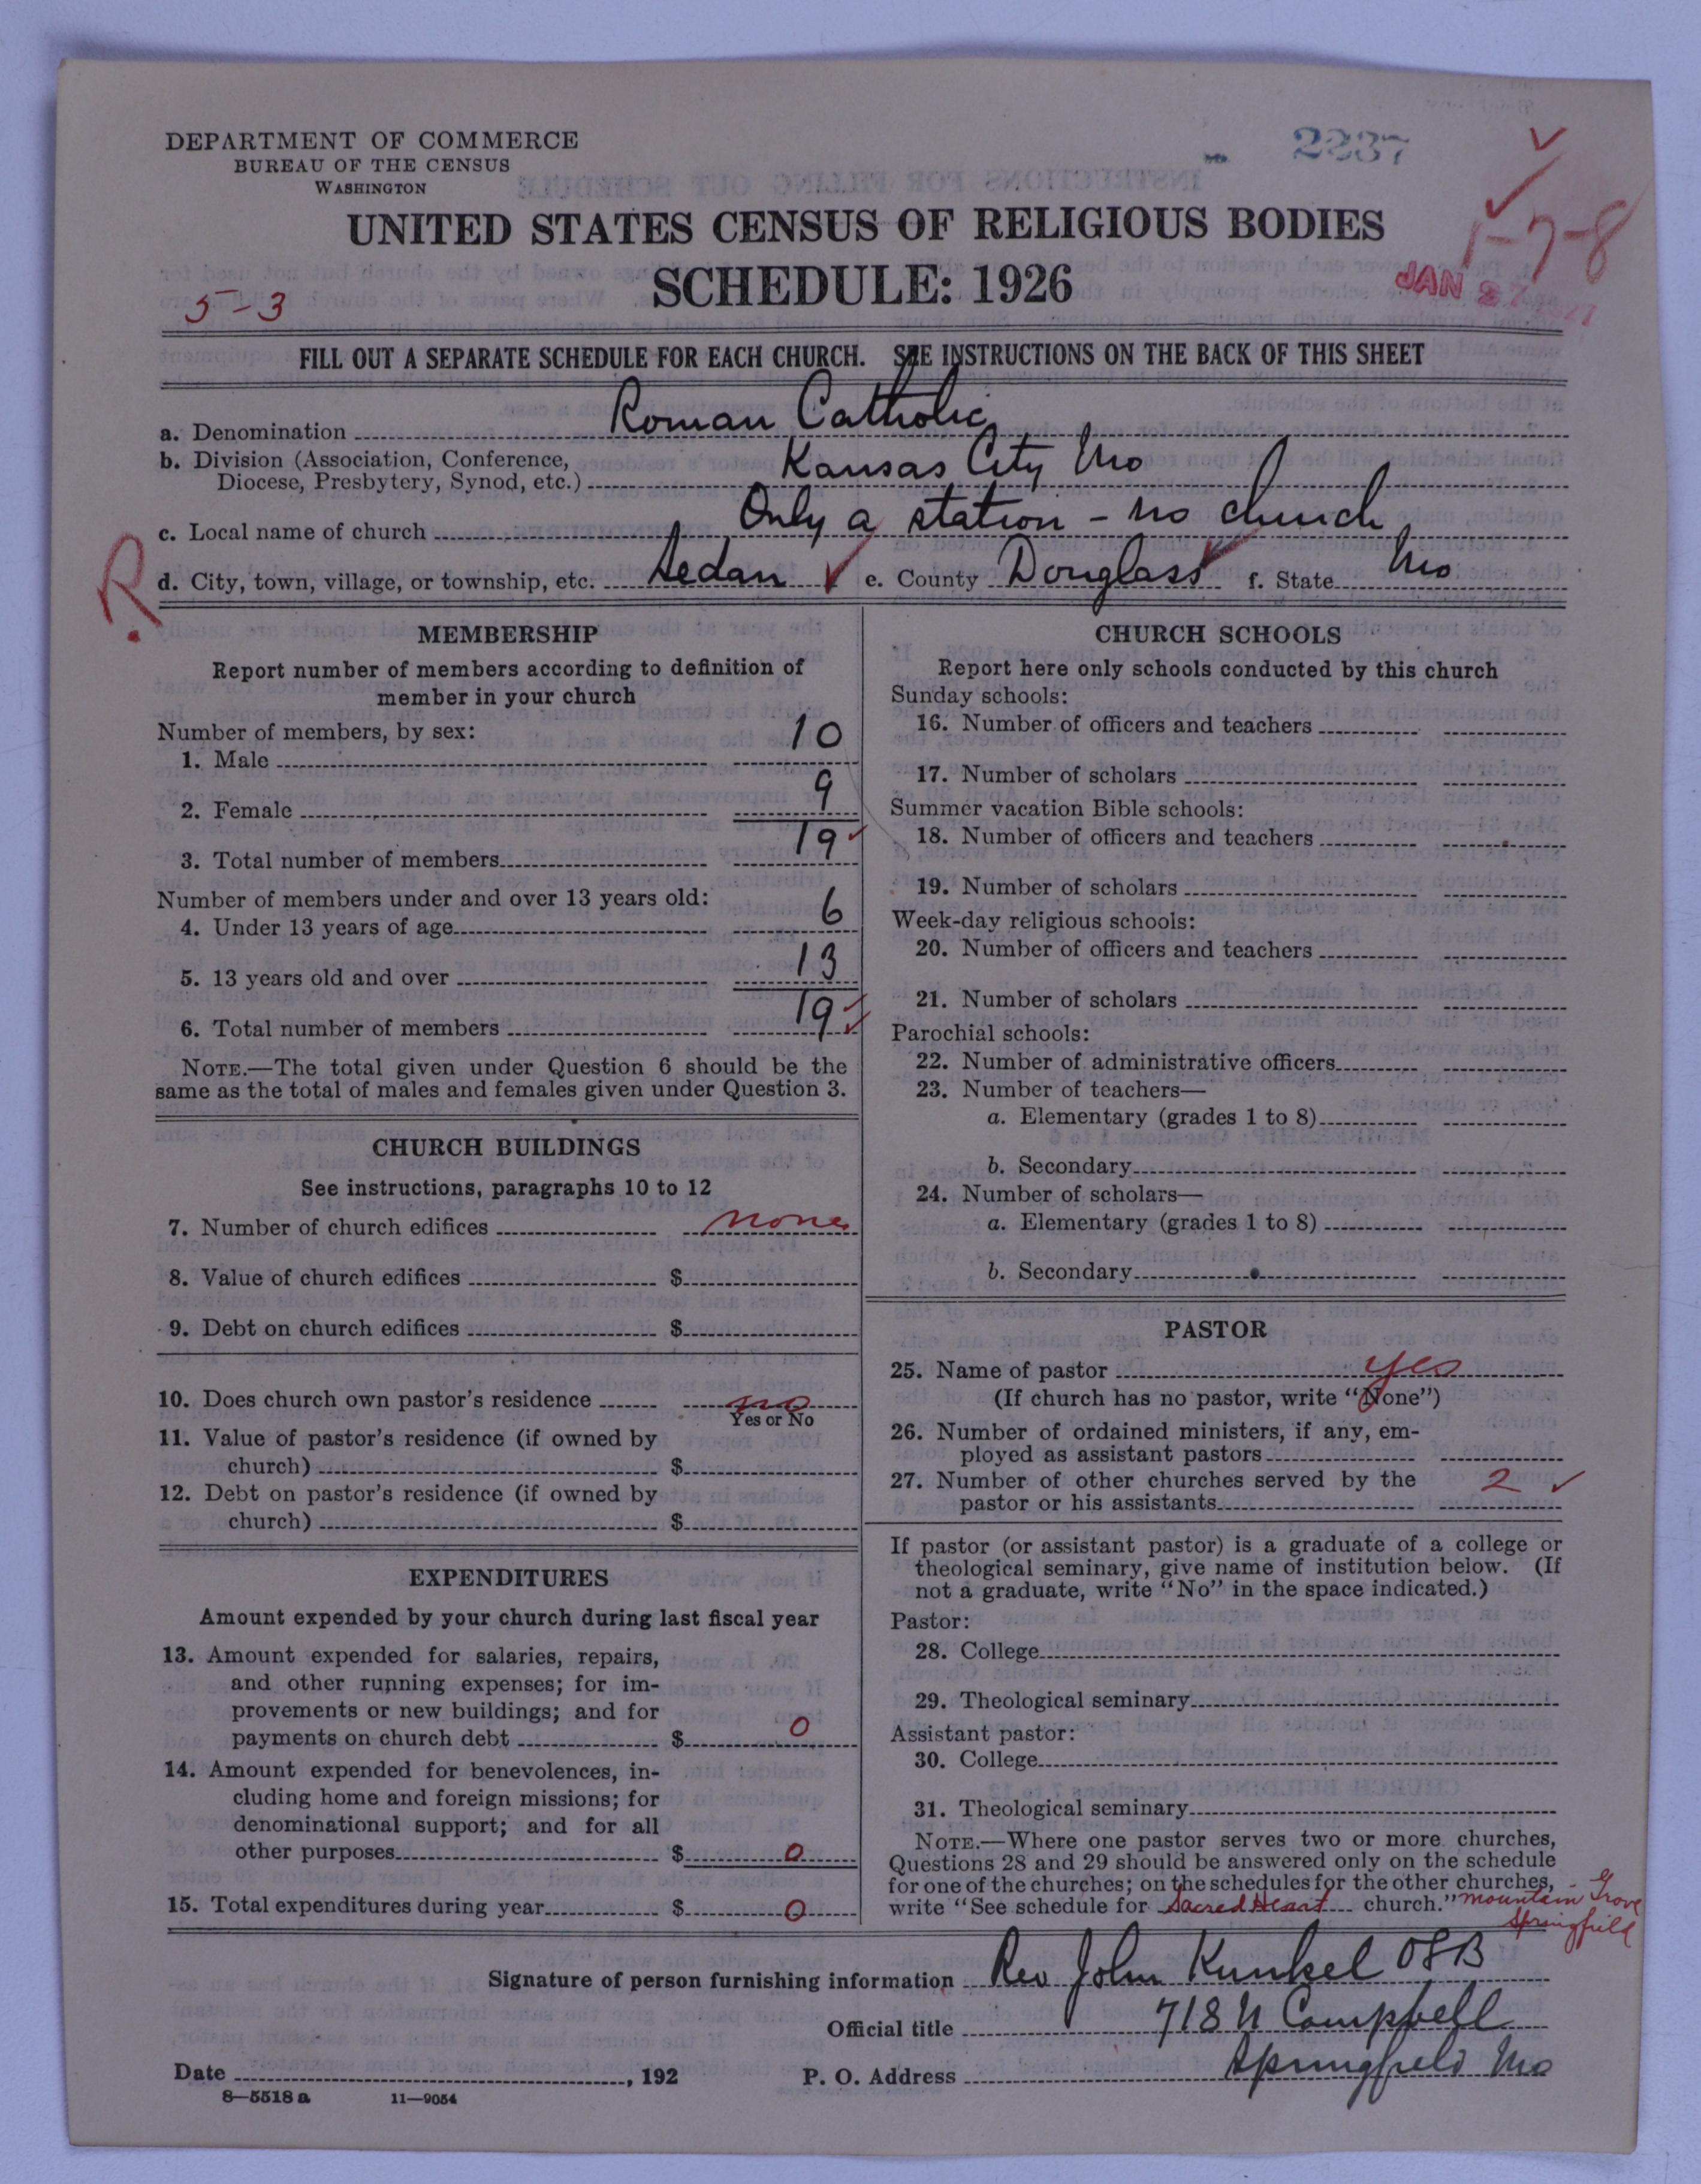 DEPARTMENT OF COMMERCE
BUREAU OF THE CENSUS
WASHINGTON
2237
UNITED STATES CENSUS OF RELIGIOUS BODIES
SCHEDULE: 1926
1-7-8
JAN 27 1927
5-3
FILL OUT A SEPARATE SCHEDULE FOR EACH CHURCH. SEE INSTRUCTIONS ON THE BACK OF THIS SHEET
a. Denomination Roman Catholic
b. Division (Association, Conference, Diocese, Presbytery, Synod, etc.) Kansas City Mo
c. Local name of church Only a station - no church
R.
d. City, town, village, or township, etc. Sedan e. County Douglass f. State Mo
MEMBERSHIP
Report number of members according to definition of
member in your church
Number of members, by sex:
1. Male 10
2. Female 9
3. Total number of members 19
Number of members under and over 13 years old:
4. Under 13 years of age 6
5. 13 years old and over 13
6. Total number of members 19
NOTE.—The total given under Question 6 should be the
same as the total of males and females given under Question 3.
CHURCH BUILDINGS
See instructions, paragraphs 10 to 12
7. Number of church edifices none
8. Value of church edifices $
9. Debt on church edifices $
10. Does church own pastor's residence no
Yes or No
11. Value of pastor's residence (if owned by
church) $
12. Debt on pastor's residence (if owned by
church) $
EXPENDITURES
Amount expended by your church during last fiscal year
13. Amount expended for salaries, repairs,
and other running expenses; for im-
provements or new buildings; and for
payments on church debt $ 0
14. Amount expended for benevolences, in-
cluding home and foreign missions; for
denominational support; and for all
other purposes $ 0
15. Total expenditures during year $ 0
CHURCH SCHOOLS
Report here only schools conducted by this church
Sunday schools:
16. Number of officers and teachers
17. Number of scholars
Summer vacation Bible schools:
18. Number of officers and teachers
19. Number of scholars
Week-day religious schools:
20. Number of officers and teachers
21. Number of scholars
Parochial schools:
22. Number of administrative officers
23. Number of teachers—
a. Elementary (grades 1 to 8)
b. Secondary
24. Number of scholars—
a. Elementary (grades 1 to 8)
b. Secondary
PASTOR
25. Name of pastor yes
(If church has no pastor, write "None")
26. Number of ordained ministers, if any, em-
ployed as assistant pastors
27. Number of other churches served by the
pastor or his assistants 2
If pastor (or assistant pastor) is a graduate of a college or
theological seminary, give name of institution below. (If
not a graduate, write "No" in the space indicated.)
Pastor:
28. College
29. Theological seminary
Assistant pastor:
30. College
31. Theological seminary
NOTE.—Where one pastor serves two or more churches,
Questions 28 and 29 should be answered only on the schedule
for one of the churches; on the schedules for the other churches,
write "See schedule for Sacred Heart church." - Mountain Grove
Springfield
Signature of person furnishing information Rev John Kunkel OSB
Official title 718 N Campbell
Date , 192 P. O. Address Springfield Mo
8—5518 a 11—9054